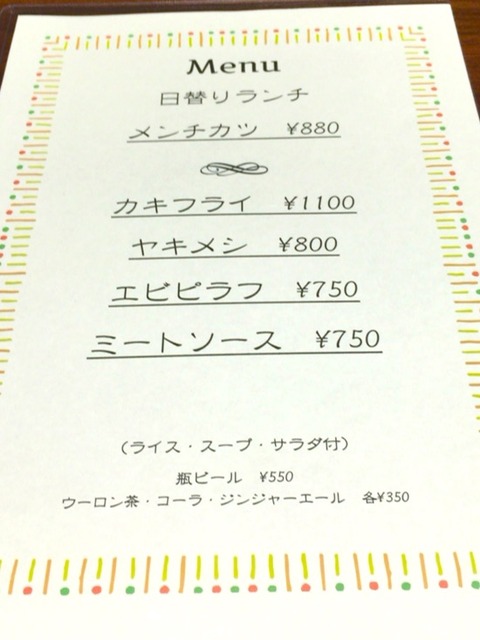 Menu
日替りランチ
メンチカツ ¥880
カキフライ ¥1100
ヤキメシ ¥800
エビピラフ ¥750
ミートソース ¥750
（ライス・スープ・サラダ付）
瓶ビール ¥550
ウーロン茶・コーラ・ジンジャーエール 各¥350